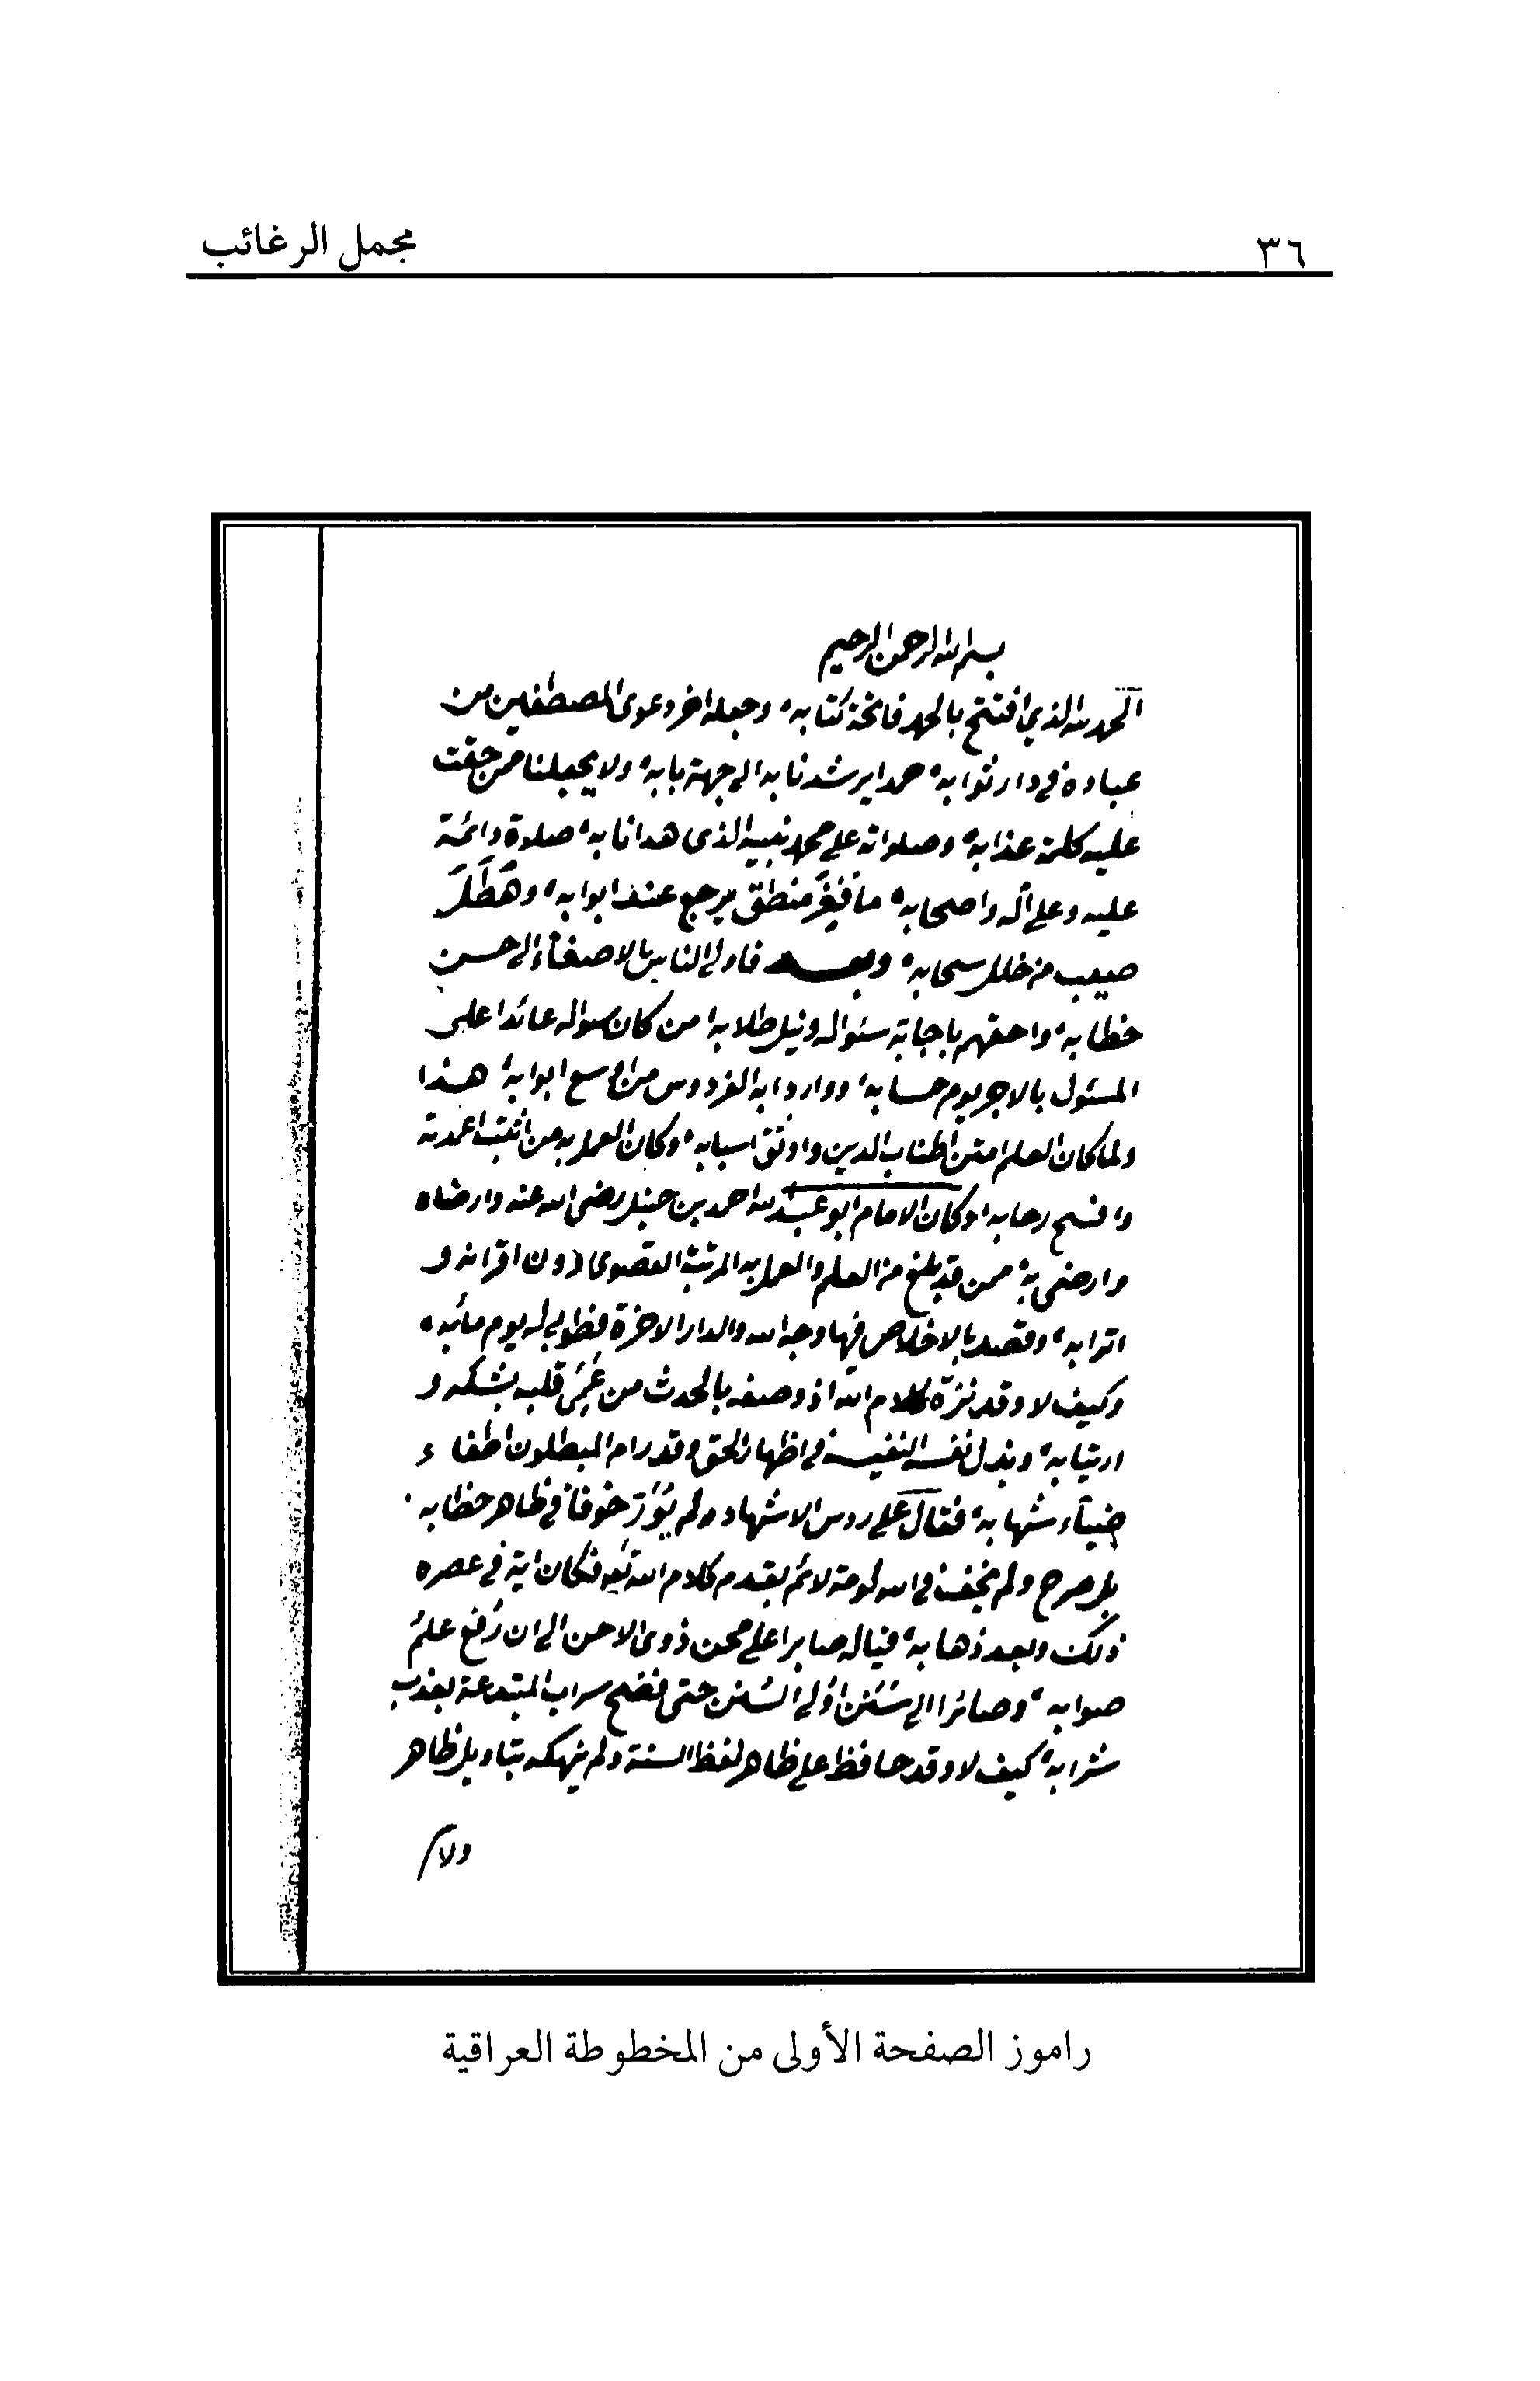 ٣٦
مجمل الرغائب
بسم الله الرحمن الرحيم
الحمد لله الذي افتتح بالحمد فاتحة كتابه، وجعله اخر دعوى المصطفين من
عباده في دار ثوابه، حمدا يرشدنا به الى جهة بابه، ولا يجعلنا ممن حقت
عليه كلمة عذابه، وصلواته على محمد نبيه الذى هدانا به، صلوة دائمة
عليه وعلى آله واصحابه، ما فَغَر منطق يرجع عند ابوابه، وهَطَلَ
صيب من خلل سحابه، وبعد فاولى الناس بالاصغاء الى حسن
خطابه، واحقهم باجابة سئواله ونيل طلابه، من كان سواله عائدا على
المسئول بالاجر يوم حسابه، ووارد به الفردوس من اوسع ابوابه، هذا
ولما كان العلم امتن اطناب الدين واوثق اسبابه، وكان العمل به من أثبت اعمدته
وافسح رحابه، وكان الامام ابو عبد الله احمد بن حنبل رضى الله عنه وارضاه
وارضى به، ممن قد بلغ من العلم والعمل به المرتبة القصوى دون اقرانه و
اترابه، وقصد بالاخلاص فيها وجه الله والدار الاخرة فطوبى له يوم مآبه،
وكيف لا وقد نزّه كلام الله اذ وصفه بالحدث من عَمِىَ قلبه بشكه و
ارتيابه، وبذل نفسه النفيسة في اظهار الحق وقد رام المبطلون اطفاء
ضياء شهابه، فقال على روس الاشهاد ولم يُوَرِّ خوفا في ظاهر خطابه.
بل صرح ولم يخف في الله لومة لائم بقدم كلام الله تع فكان اية في عصره
ذلك وبعد ذهابه، فياله صابرا على محن ذوى الاحن الى ان رُفع علمُ
صوابه، وصائرا الى سَنَن أولى السُنن حتى فضح سراب المبتدعة بعذب
شرابه، كيف لا وقد حافظ على ظاهر لفظ السنة ولم ينهكه بتاويل ظاهر
ولا
راموز الصفحة الأولى من المخطوطة العراقية